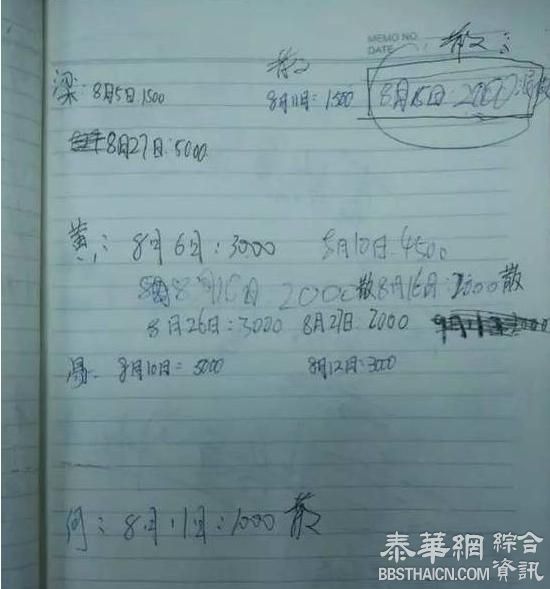 MEMO NO.
DATE
散:
散
梁:8月5日:1500 8月11日:1500 8月15日:2000
8月27日:5000
黄:8月6日:3000 8月10日:4500
8月16日 2000散 8月16日:2000散
8月26日:3000 8月27日:2000
8月10日:5000 8月12日:3000
何:8月11日:1000 散
泰華網 綜合資訊
BBSTHAICN.COM